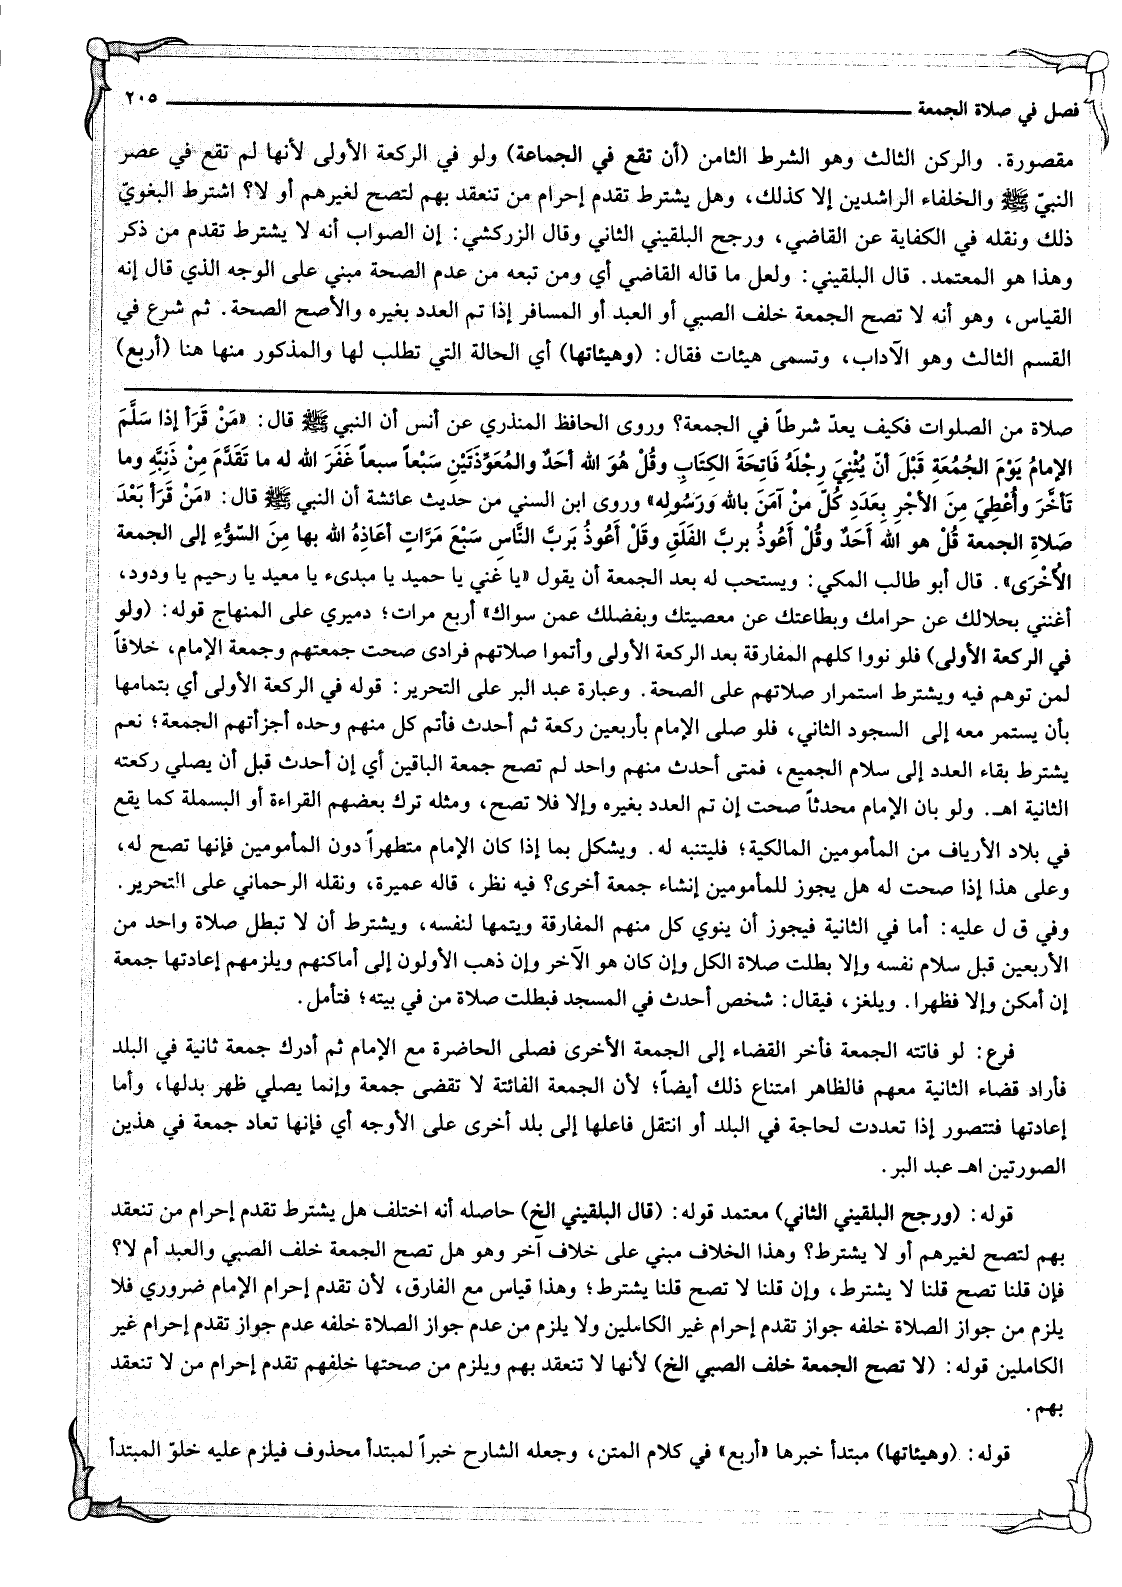 فصل في صلاة الجمعة ٢٠٥
مقصورة. والركن الثالث وهو الشرط الثامن (أن تقع في الجماعة) ولو في الركعة الأولى لأنها لم تقع في عصر
النبيّ ﷺ والخلفاء الراشدين إلا كذلك، وهل يشترط تقدم إحرام من تنعقد بهم لتصح لغيرهم أو لا؟ اشترط البغويّ
ذلك ونقله في الكفاية عن القاضي، ورجح البلقيني الثاني وقال الزركشي: إن الصواب أنه لا يشترط تقدم من ذكر
وهذا هو المعتمد. قال البلقيني: ولعل ما قاله القاضي أي ومن تبعه من عدم الصحة مبني على الوجه الذي قال إنه
القياس، وهو أنه لا تصح الجمعة خلف الصبي أو العبد أو المسافر إذا تم العدد بغيره والأصح الصحة. ثم شرع في
القسم الثالث وهو الآداب، وتسمى هيئات فقال: (وهيئاتها) أي الحالة التي تطلب لها والمذكور منها هنا (أربع)
صلاة من الصلوات فكيف يعدّ شرطاً في الجمعة؟ وروى الحافظ المنذري عن أنس أن النبي ﷺ قال: «مَنْ قَرَأ إذا سَلَّمَ
الإمامُ يَوْمَ الجُمُعَةِ قَبْلَ أنّ يُثْنِيَ رِجْلَهُ فَاتِحَةَ الكِتَابِ وقُلْ هُوَ الله أحَدٌ والمُعَوِّذَتَيْنِ سَبْعاً سبعاً غَفَرَ الله له ما تَقَدَّمَ مِنْ ذَنِبِّهِ وما
تَأخَّرَ وأُعْطِيَ مِنَ الأجْرِ بِعَدَدِ كُلّ مَنْ آمَنَ بالله وَرَسُولِه» وروى ابن السني من حديث عائشة أن النبي ﷺ قال: «مَنْ قَرَأ بَعْدَ
صَلاةِ الجمعة قُلْ هو الله أَحَدٌ وقُلْ أَعُوذُ بربَّ الفَلَقِ وقَلْ أَعُوذُ بَربَّ النَّاسِ سَبْعَ مَرَّاتٍ أعَاذِهُ الله بها مِنَ السّوُءِ إلى الجمعة
الأُخْرَى». قال أبو طالب المكي: ويستحب له بعد الجمعة أن يقول «يا غني يا حميد يا مبدىء يا معيد يا رحيم يا ودود،
أغنني بحلالك عن حرامك وبطاعتك عن معصيتك وبفضلك عمن سواك» أربع مرات؛ دميري على المنهاج قوله: (ولو
في الركعة الأولى) فلو نووا كلهم المفارقة بعد الركعة الأولى وأتموا صلاتهم فرادى صحت جمعتهم وجمعة الإمام، خلافاً
لمن توهم فيه ويشترط استمرار صلاتهم على الصحة. وعبارة عبد البر على التحرير: قوله في الركعة الأولى أي بتمامها
بأن يستمر معه إلى السجود الثاني، فلو صلى الإمام بأربعين ركعة ثم أحدث فأتم كل منهم وحده أجزأتهم الجمعة؛ نعم
يشترط بقاء العدد إلى سلام الجميع، فمتى أحدث منهم واحد لم تصح جمعة الباقين أي إن أحدث قبل أن يصلي ركعته
الثانية اهـ. ولو بان الإمام محدثاً صحت إن تم العدد بغيره وإلا فلا تصح، ومثله ترك بعضهم القراءة أو البسملة كما يقع
في بلاد الأرياف من المأمومين المالكية؛ فليتنبه له. ويشكل بما إذا كان الإمام متطهراً دون المأمومين فإنها تصح له،
وعلى هذا إذا صحت له هل يجوز للمأمومين إنشاء جمعة أخرى؟ فيه نظر، قاله عميرة، ونقله الرحماني على التحرير.
وفي ق ل عليه: أما في الثانية فيجوز أن ينوي كل منهم المفارقة ويتمها لنفسه، ويشترط أن لا تبطل صلاة واحد من
الأربعين قبل سلام نفسه وإلا بطلت صلاة الكل وإن كان هو الآخر وإن ذهب الأولون إلى أماكنهم ويلزمهم إعادتها جمعة
إن أمكن وإلا فظهرا. ويلغز، فيقال: شخص أحدث في المسجد فبطلت صلاة من في بيته؛ فتأمل.
فرع: لو فاتته الجمعة فأخر القضاء إلى الجمعة الأخرى فصلى الحاضرة مع الإمام ثم أدرك جمعة ثانية في البلد
فأراد قضاء الثانية معهم فالظاهر امتناع ذلك أيضاً؛ لأن الجمعة الفائتة لا تقضى جمعة وإنما يصلي ظهر بدلها، وأما
إعادتها فتتصور إذا تعددت لحاجة في البلد أو انتقل فاعلها إلى بلد أخرى على الأوجه أي فإنها تعاد جمعة في هذين
الصورتين اهـ عبد البر.
قوله: (ورجح البلقيني الثاني) معتمد قوله: (قال البلقيني الخ) حاصله أنه اختلف هل يشترط تقدم إحرام من تنعقد
بهم لتصح لغيرهم أو لا يشترط؟ وهذا الخلاف مبني على خلاف آخر وهو هل تصح الجمعة خلف الصبي والعبد أم لا؟
فإن قلنا تصح قلنا لا يشترط، وإن قلنا لا تصح قلنا يشترط؛ وهذا قياس مع الفارق، لأن تقدم إحرام الإمام ضروري فلا
يلزم من جواز الصلاة خلفه جواز تقدم إحرام غير الكاملين ولا يلزم من عدم جواز الصلاة خلفه عدم جواز تقدم إحرام غير
الكاملين قوله: (لا تصح الجمعة خلف الصبي الخ) لأنها لا تنعقد بهم ويلزم من صحتها خلفهم تقدم إحرام من لا تنعقد
بهم.
قوله: (وهيئاتها) مبتدأ خبرها «أربع» في كلام المتن، وجعله الشارح خبراً لمبتدأ محذوف فيلزم عليه خلوّ المبتدأ